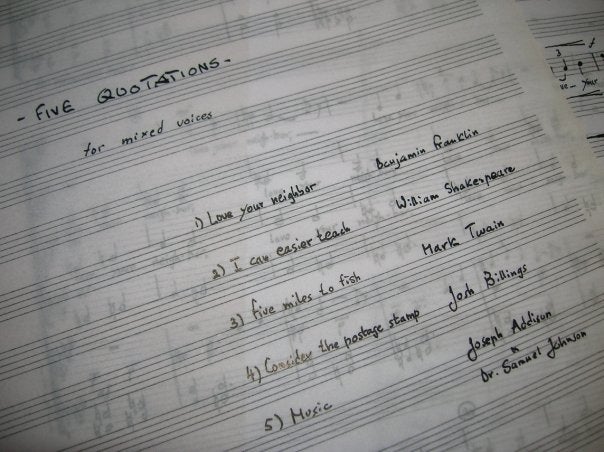 - FIVE QUOTATIONS -
for mixed voices
1) Love your neighbor Benjamin Franklin
2) I can easier teach William Shakespeare
3) five miles to fish Mark Twain
4) Consider the postage stamp Josh Billings
5) Music Joseph Addison
Dr. Samuel Johnson
3 f
ve - your